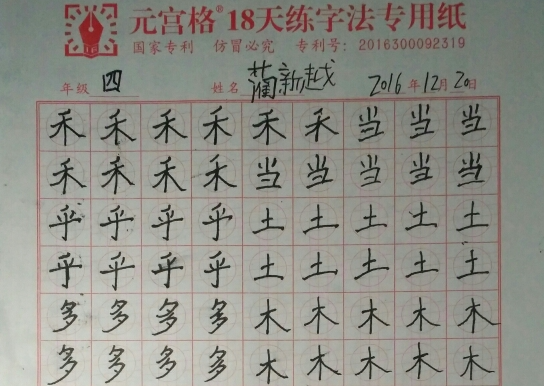 元宫格®18天练字法专用纸
国家专利 仿冒必究 专利号：2016300092319
年级 四 姓名 新越 2016年12月20日
禾 禾 禾 禾 禾 禾 当 当 当
禾 禾 禾 禾 当 当 当 当 当
乎 乎 乎 乎 土 土 土 土 土
乎 乎 乎 乎 土 土 土 土 土
多 多 多 多 木 木 木 木 木
多 多 多 多 木 木 木 木 木